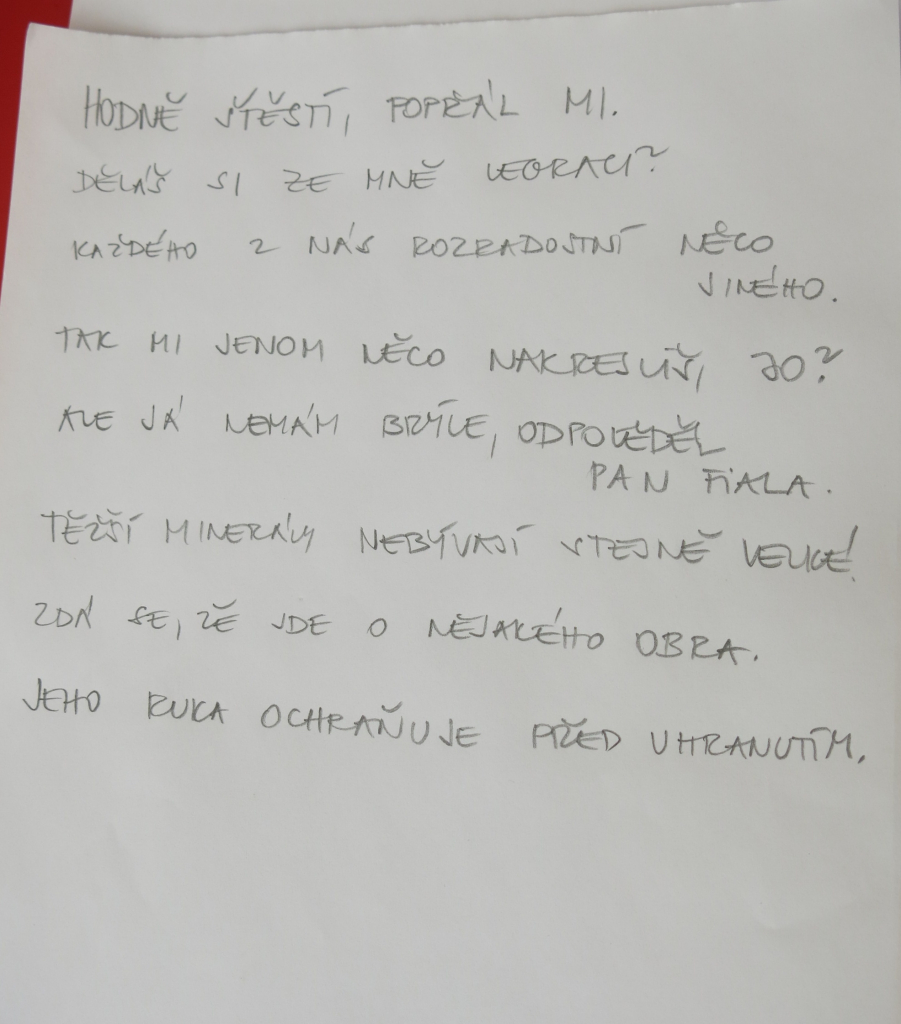 HODNĚ ŠTĚSTÍ, POPŘÁL MI.
DĚLÁŠ SI ZE MNĚ LEGRACI?
KAŽDÉHO Z NÁS ROZRADOSTNÍ NĚCO
JINÉHO.
TAK MI JENOM NĚCO NAKRESLÍŠ, JO?
ALE JÁ NEMÁM BRÝLE, ODPOVĚDĚL
PAN FIALA.
TĚŽŠÍ MINERÁLY NEBÝVAJÍ STEJNĚ VELKÉ!
ZDÁ SE, ŽE JDE O NĚJAKÉHO OBRA.
JEHO RUKA OCHRAŇUJE PŘED UHRANUTÍM.